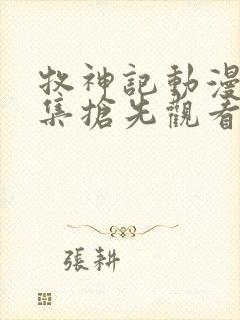 牧神記動漫
集搶先觀看
張耕